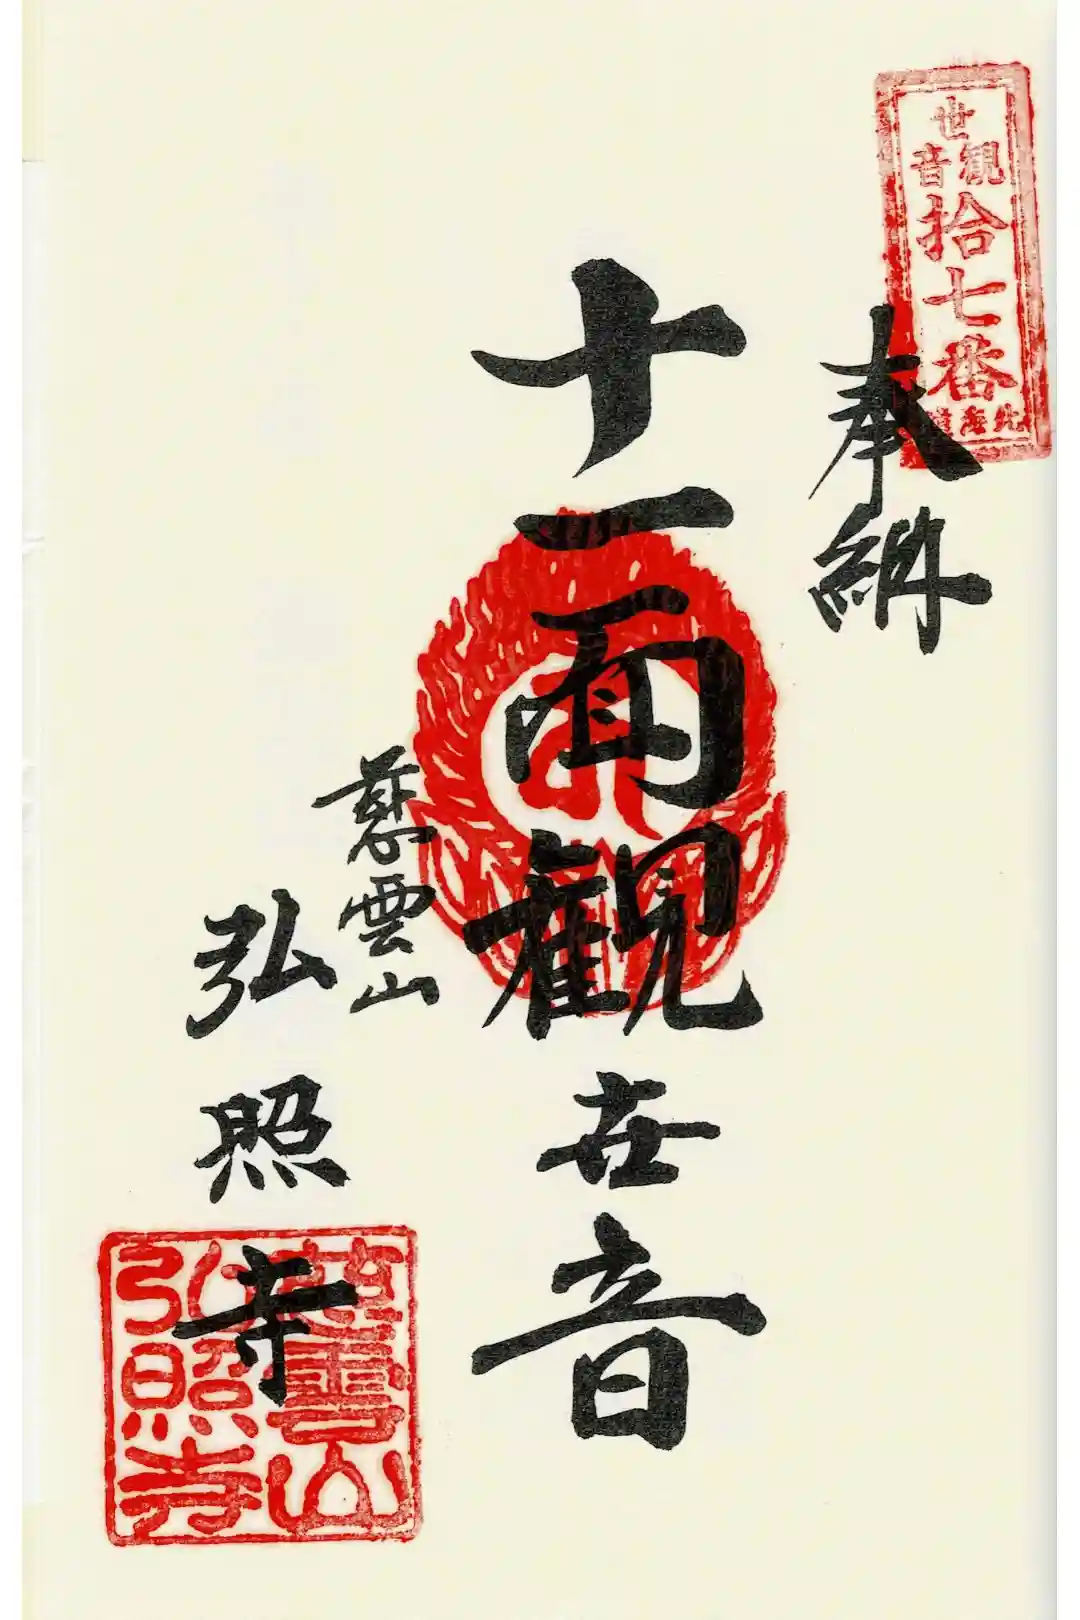 世
観音
拾七番
北海道
奉納
十一面観世音
慈雲山
弘照寺
慈雲山
弘照寺